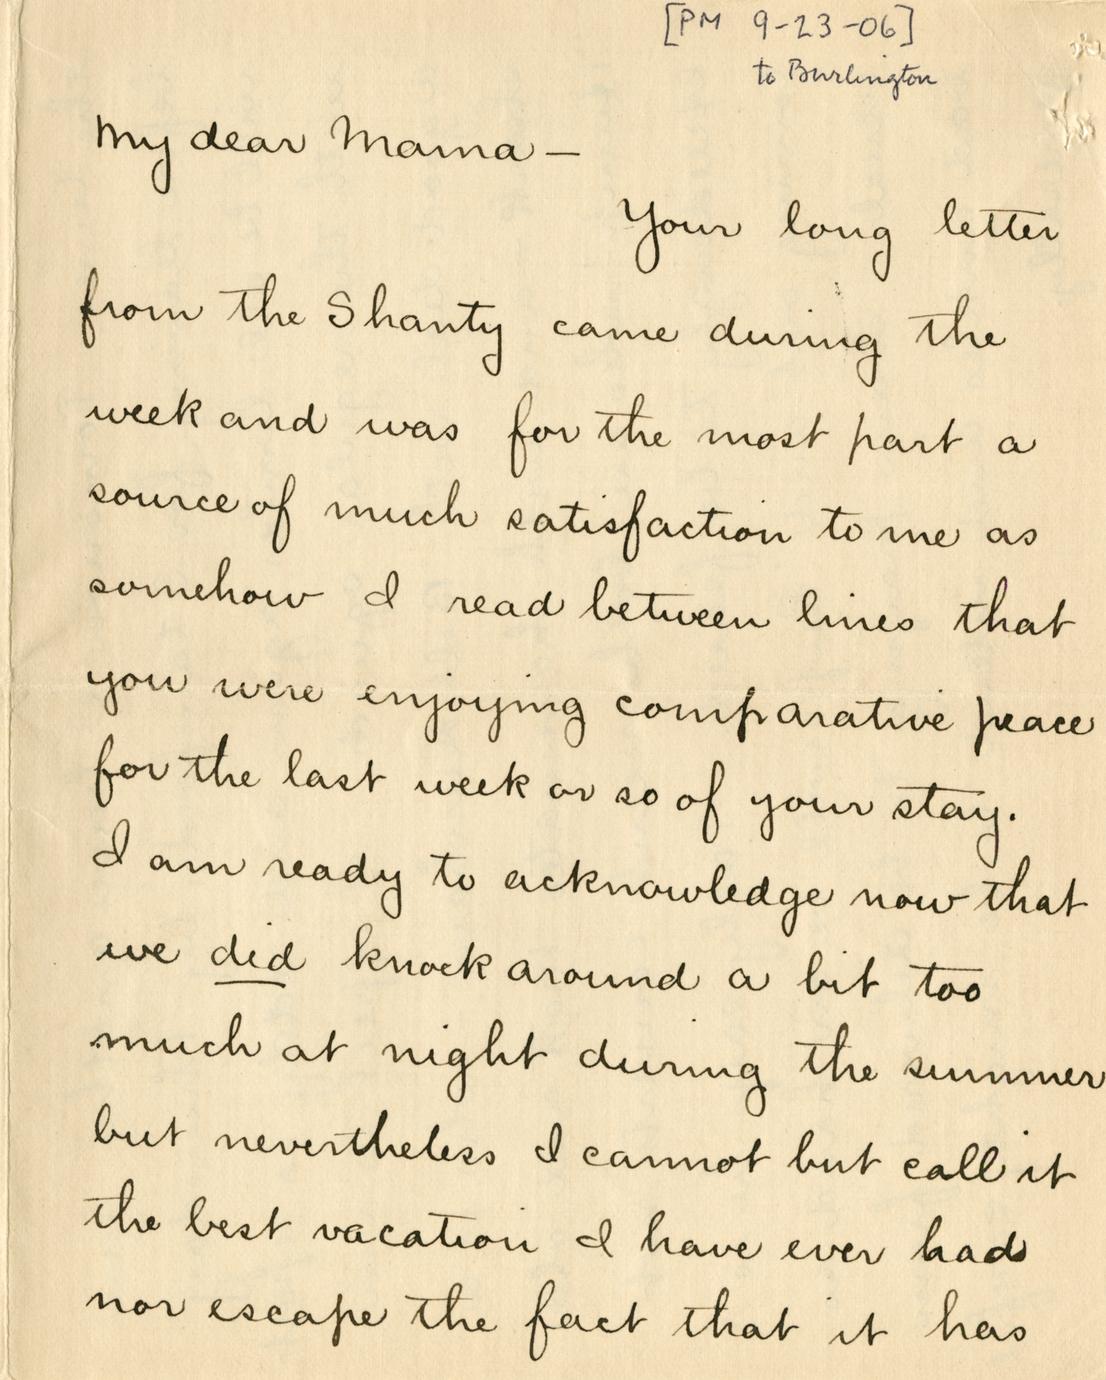 [PM 9-23-06]
to Burlington
My dear Mama —
Your long letter
from the Shanty came during the
week and was for the most part a
source of much satisfaction to me as
somehow I read between lines that
you were enjoying comparative peace
for the last week or so of your stay.
I am ready to acknowledge now that
we did knock around a bit too
much at night during the summer
but nevertheless I cannot but call it
the best vacation I have ever had
nor escape the fact that it has